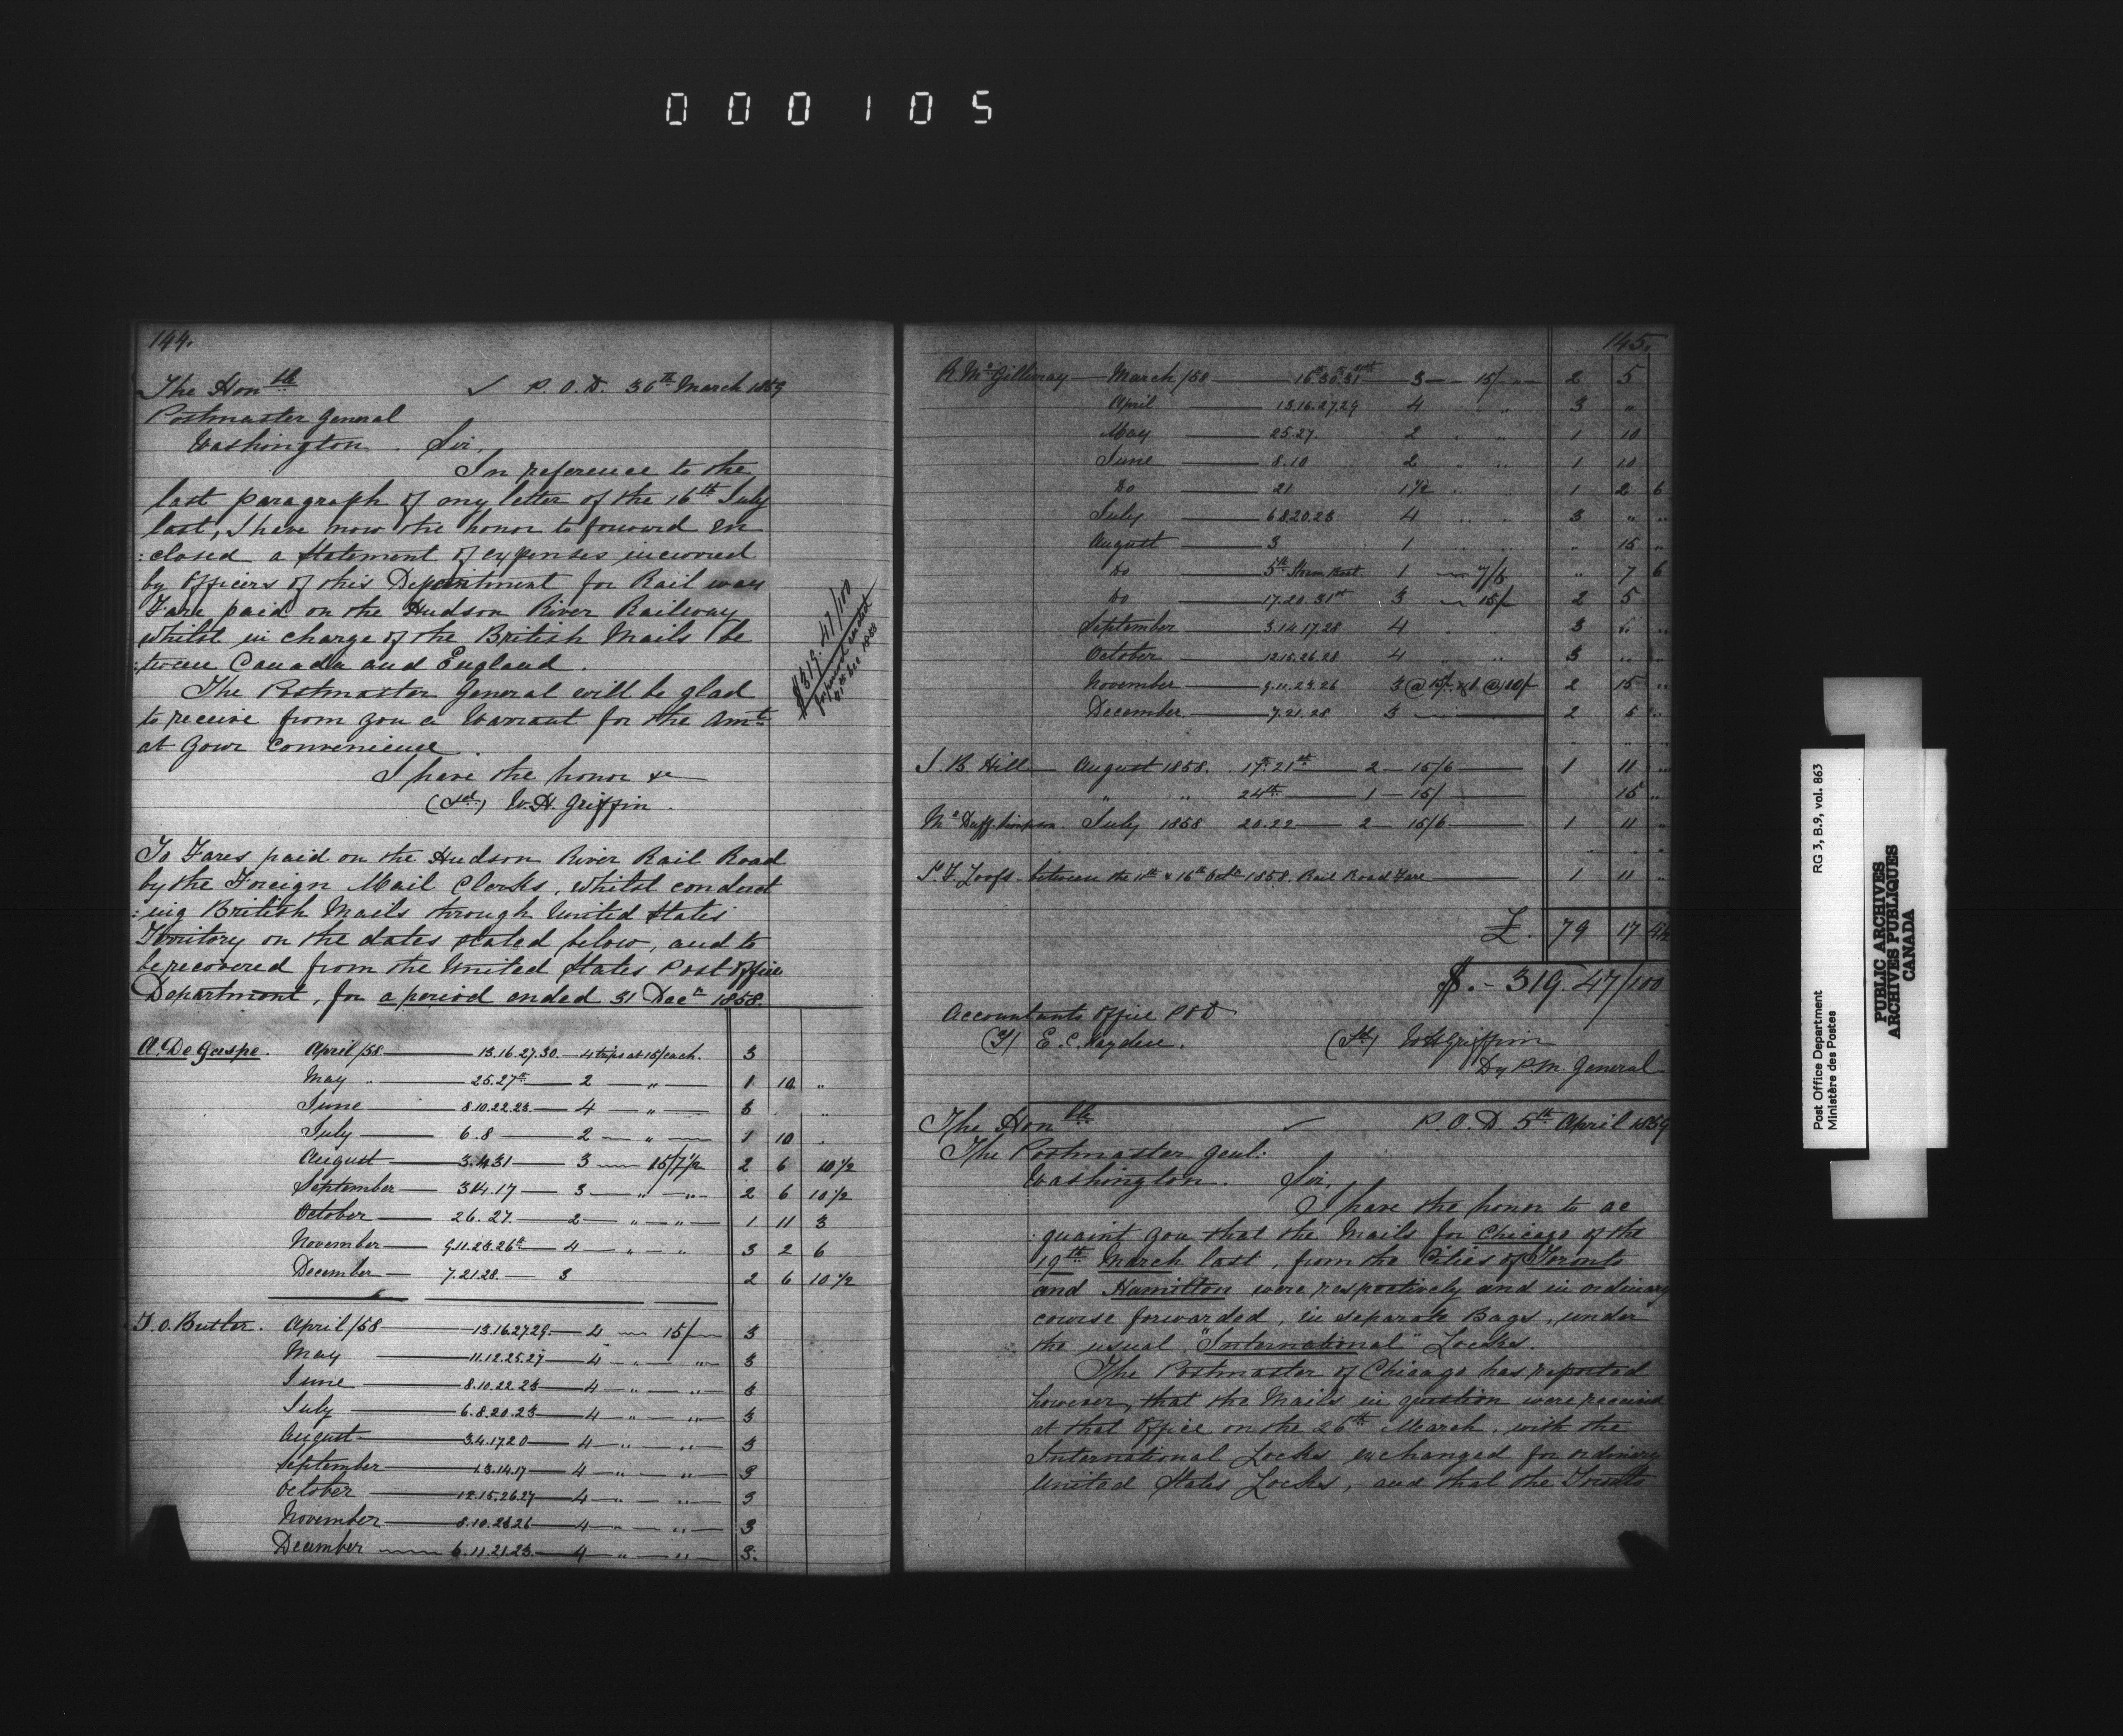 000105
144.
The Honble ✓ P. O. D. 30th March 1859
Postmaster General
Washington. Sir,
In reference to the
last paragraph of my letter of the 16th July
last, I have now the honor to forward en
:closed a Statement of expenses incurred
by Officers of this Department for Rail way
Fare paid on the Hudson River Railway
whilst in charge of the British Mails be
:tween Canada and England.
The Postmaster General will be glad
to receive from you a Warrant for the Amt
at your convenience.
I have the honor &c
(Sd) W.H. Griffin.
$319.47/100
To Fares paid on the Hudson River Rail Road
by the Foreign Mail Clerks, whilst conduct
:ing British Mails through United States
Territory on the dates stated below, and to
be recovered from the United States Post Office
Department, for a period ended 31 Decr 1858.
A. De Gaspe. April/58 — 13.16.27.30. — 4 trips at 15/ each. 3
May " — 25.27th — 2 — " — 1 10 "
June — 8.10.22.23 — 4 — " — 3 "
July — 6.8 — 2 — " — 1 10 .
August — 3.4.31 — 3 — 15/7½ 2 6 10½
September — 3.14.17 — 3 — " — " — 2 6 10½
October — 26.27. — 2 — " — " — 1 11 3
November — 9.11.23.26th — 4 — " — " 3 2 6
December — 7.21.28. — 3 2 6 10½
T. O. Butler. April/58 — 13.16.27.29. — 4 — 15/ — 3
May — 11.12.25.27 — 4 — " — " — 3
June — 8.10.22.23 — 4 — " — " — 3
July — 6.8.20.23 — 4 — " — " — 3
August — 3.4.17.20 — 4 — " — " — 3
September — 1.3.14.17 — 4 — " — " — 3
October — 12.15.26.27 — 4 — " — " — 3
November — 8.10.23.26 — 4 — " — " — 3
December — 6.11.21.23. — 4 — " — " — 3.
145.
R. McGillivray — March/58 — 16.30.31st 3 — 15/ — 2 5
April — 13.16.27.29 4 " 3 "
May — 25.27. 2 " " 1 10
June — 8.10 2 " " 1 10
Do — 21 1½ " 1 2 6
July — 6.8.20.23 4 " " 3 " "
August — 3 1 " " " 15 "
Do — 5th 1 — 7/6 " 7 6
Do — 17.20.31st 3 — 15/ 2 5
September — 3.14.17.28 4 3 " "
October — 12.15.26.28 4 " 3 " "
November — 9.11.23.26 3 @ 15/. & 1 @ 10/ 2 15 "
December. — 7.21.28 3 — 2 5 "
J. B. Hill — August 1858. 17th.21st — 2 — 15/6 — 1 11 "
" " 24th — 1 — 15/ — 15 "
July 1858 20.22 — 2 — 15/6 — 1 11 "
between the 11th & 16th Octr 1858. Rail Road Fare — 1 11 "
£. 79 17 4½
$. - 319.47/100
Accountants Office P O D
E. C. Hayden. (Sd) W H Griffin
Dy P.M. General
The Honble ✓ P. O. D. 5th April 1859
The Postmaster Genl:
Washington. Sir,
I have the honor to ac
:quaint you that the Mails for Chicago of the
19th March last, from the Cities of Toronto
and Hamilton were respectively and in ordinary
course forwarded, in separate Bags, under
the usual "International" Locks.
The Postmaster of Chicago has reported
however, that the Mails in question were received
at that Office on the 26th March, with the
International Locks exchanged for ordinary
United States Locks, and that the Toronto
Post Office Department RG 3, B.9, vol. 863
Ministère des Postes
PUBLIC ARCHIVES
ARCHIVES PUBLIQUES
CANADA